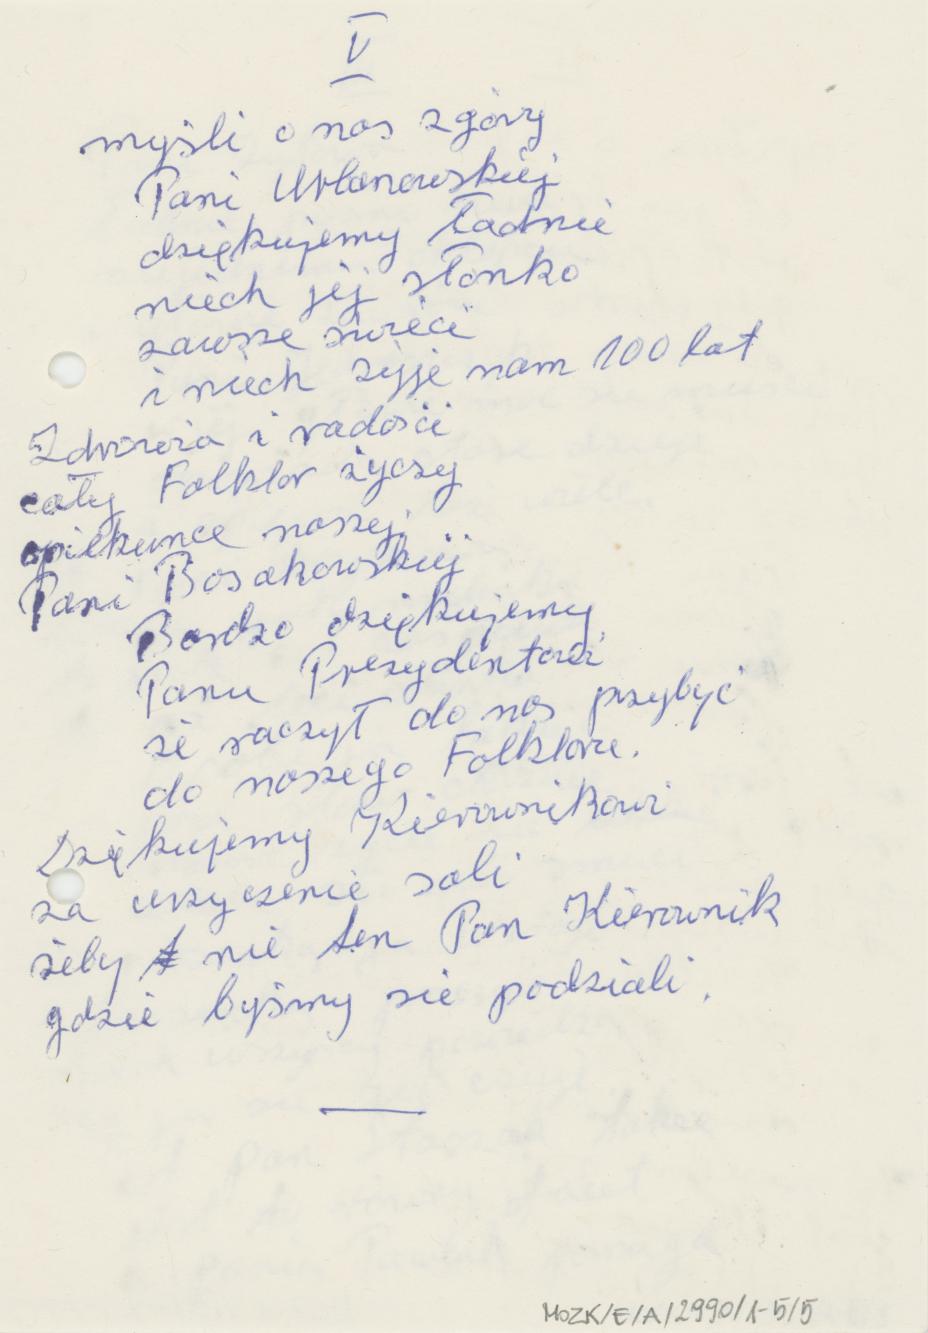 V
myśli o nas z góry
Pani Urbanowskiej
dziękujemy ładnie
niech jej słonko
zawsze świeci
i niech żyje nam 100 lat
Zdrowia i radości
cały Folklor życzy
opiekunce naszej
Pani Bosakowskiej
Bardzo dziękujemy
Panu Prezydentowi
że raczył do nas przybyć
do naszego Folkloru.
Dziękujemy Kierownikowi
za urzyczenie sali
żeby nie ten Pan Kierownik
gdzie byśmy sie podziali.
MOZK/E/A/2990/1-5/5